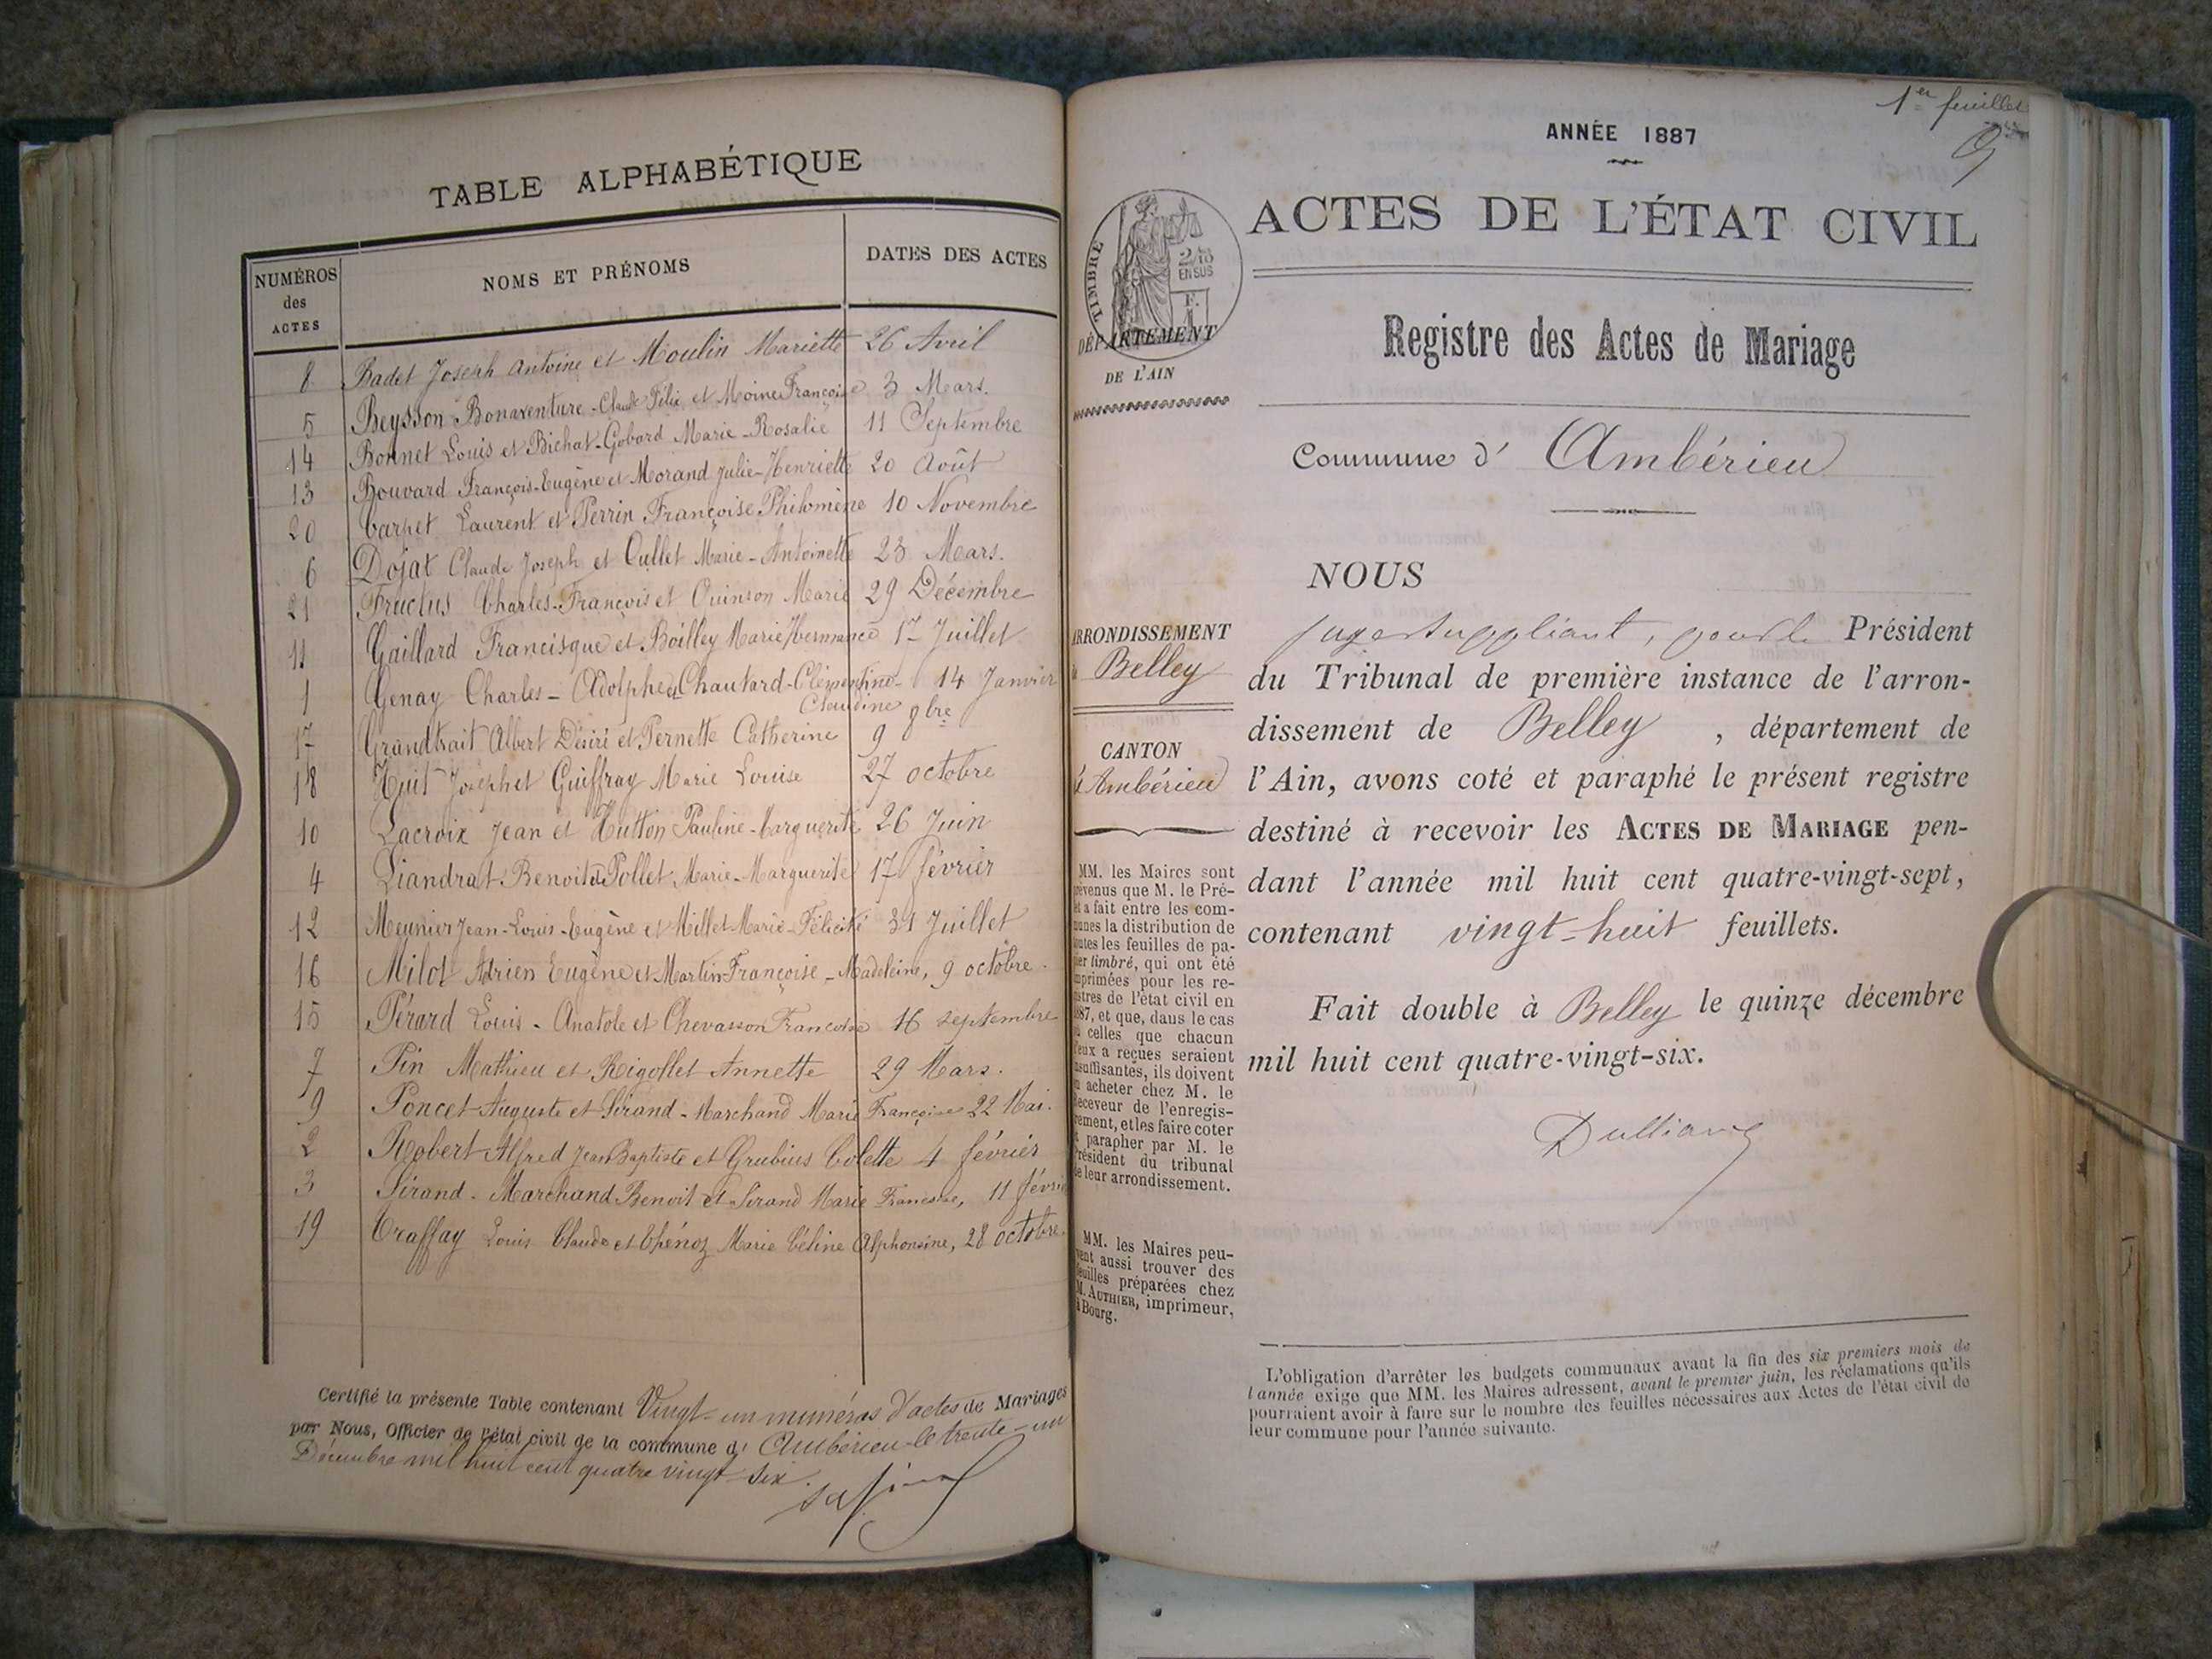 TABLE ALPHABÉTIQUE
NUMÉROS des ACTES NOMS ET PRÉNOMS DATES DES ACTES
8 Badet Joseph Antoine et Moulin Mariette 26 Avril
5 Beysson Bonaventure-Claude Félix et Moine Françoise 3 Mars.
14 Bonnet Louis et Bichat-Gobard Marie-Rosalie 11 Septembre
13 Bouvard François-Eugène et Morand Julie-Henriette 20 Août
20 Carpet Laurent et Perrin Françoise Philomène 10 Novembre
6 Dojat Claude Joseph et Cullet Marie-Antoinette 23 Mars.
21 Fructus Charles-François et Quinson Marie 29 Décembre
11 Gaillard Francisque et Boilley Marie Hermance 1er Juillet
1 Genay Charles-Adolphe et Chautard-Clémentine- 14 Janvier
Claudine
17 Grandtrait Albert Désiré et Pernette Catherine 9 9bre
18 Huit Joseph et Guiffray Marie Louise 27 octobre
10 Lacroix Jean et Hutton Pauline-Marguerite 26 Juin
4 Liandrat Benoit et Pollet Marie-Marguerite 17 février
12 Meunier Jean-Louis-Eugène et Millet Marie-Félicité 31 Juillet
16 Milot Adrien Eugène et Martin Françoise-Madeleine, 9 octobre.
15 Pérard Louis-Anatole et Chevasson Françoise 16 septembre
7 Pin Mathieu et Rigollet Annette 29 Mars.
9 Poncet Auguste et Sirand-Marchand Marie Françoise 22 Mai.
2 Robert Alfred Jean Baptiste et Grubius Colette 4 février
3 Sirand-Marchand Benoit et Sirand Marie Francoise, 11 févri
19 Traffay Louis Claude et Chénoz Marie Céline Alphonsine, 28 octobre.
Certifié la présente Table contenant Vingt-un numéros d'actes de Mariages
par Nous, Officier de l'état civil de la commune d' Ambérieu le trente-un
Décembre mil huit cent quatre vingt-six.
1er feuillet
ANNÉE 1887
ACTES DE L'ÉTAT CIVIL
TIMBRE
2/10
EN SUS
DÉPARTEMENT
DE L'AIN
Registre des Actes de Mariage
Commune d' Ambérieu
ARRONDISSEMENT
Belley
CANTON
d'Ambérieu
MM. les Maires sont
prévenus que M. le Pré-
et a fait entre les com-
munes la distribution de
toutes les feuilles de pa-
pier timbré, qui ont été
imprimées pour les re-
istres de l'état civil en
887, et que, dans le cas
ù celles que chacun
d'eux a reçues seraient
insuffisantes, ils doivent
n acheter chez M. le
Receveur de l'enregis-
rement, et les faire coter
t parapher par M. le
Président du tribunal
de leur arrondissement.
MM. les Maires peu-
vent aussi trouver des
feuilles préparées chez
M. AUTHIER, imprimeur,
à Bourg.
NOUS
juge suppliant, pour le Président
du Tribunal de première instance de l'arron-
dissement de Belley , département de
l'Ain, avons coté et paraphé le présent registre
destiné à recevoir les ACTES DE MARIAGE pen-
dant l'année mil huit cent quatre-vingt-sept,
contenant vingt-huit feuillets.
Fait double à Belley le quinze décembre
mil huit cent quatre-vingt-six.
L'obligation d'arrêter les budgets communaux avant la fin des six premiers mois de
l'année exige que MM. les Maires adressent, avant le premier juin, les réclamations qu'ils
pourraient avoir à faire sur le nombre des feuilles nécessaires aux Actes de l'état civil de
leur commune pour l'année suivante.